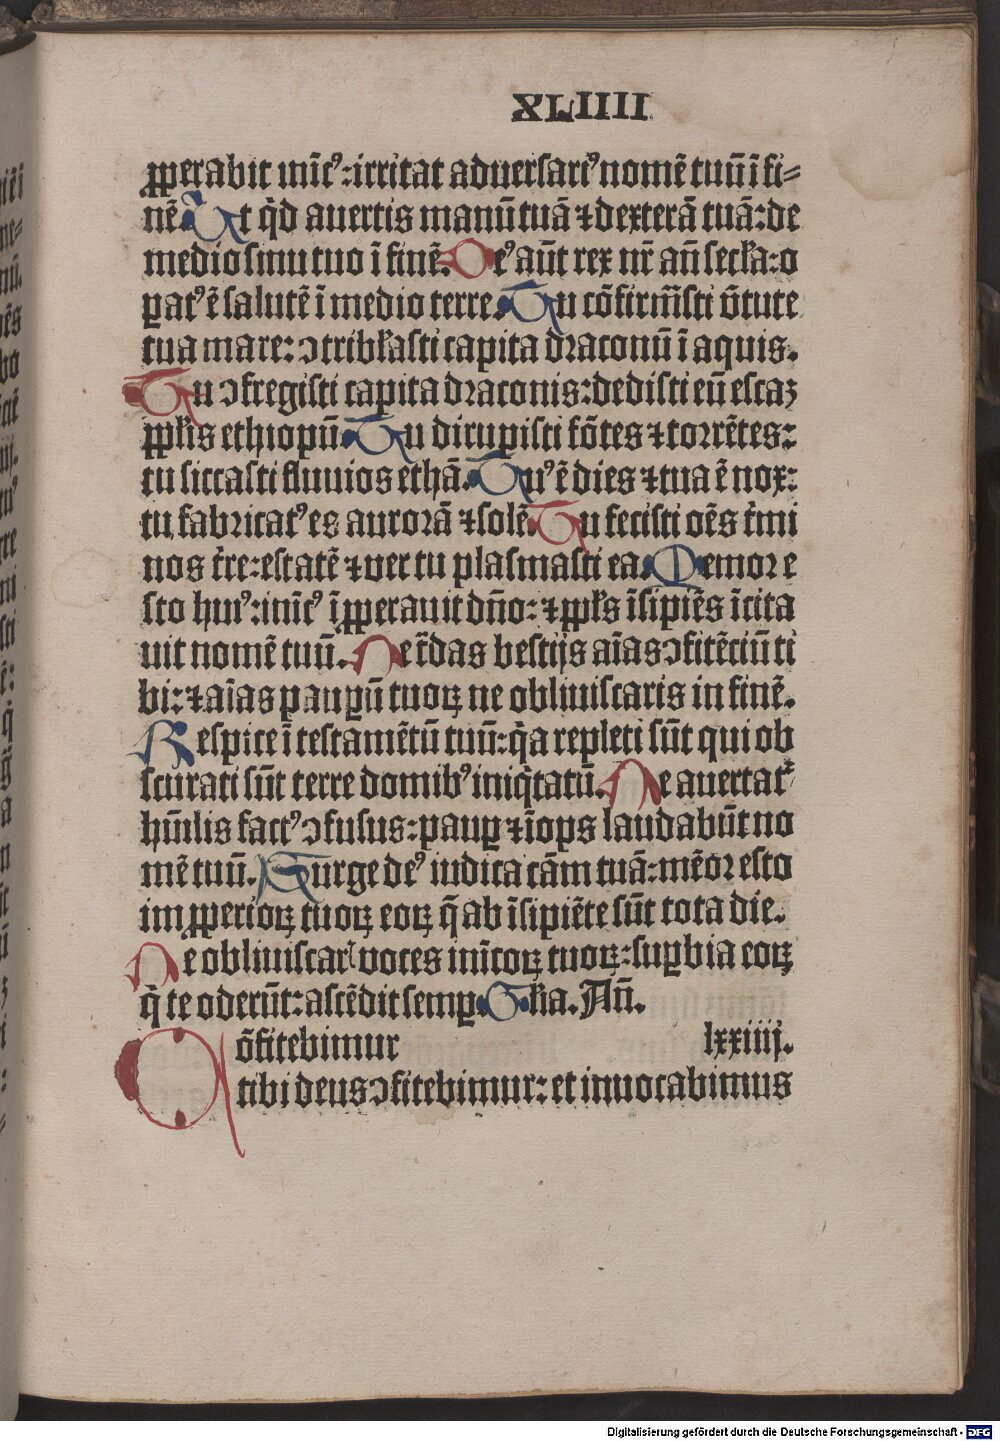 XLIIII
ꝓperabit inīcꝰ:irritat aduersariꝰ nomē tuū ī fi⸗
nē. Ut q̇d auertis manū tuā ⁊ dexterā tuā: de
medio sinu tuo ī finē. Deꝰ aūt rex nr̄ an̄ secła: o
ꝑatꝰ ē salutē ī medio terre. Tu cōfirm̄sti v̄tute
tua mare: ↄtribłasti capita draconū ī aquis.
Tu ↄfregisti capita draconis: dedisti eū escaꝫ
ꝓpłis ethiopū. Tu dirupisti fōtes ⁊ torrētes:
tu siccasti fluuios ethā. Tuꝰ ē dies ⁊ tua ē nox:
tu fabricatꝰ es aurorā ⁊ solē. Tu fecisti oēs t̓mi
nos t̓re: estatē ⁊ ver tu plasmasti ea. Memor e
sto huiꝰ: inīcꝰ īꝓperauit dn̄o: ⁊ ꝓpłs īsipiēs īcita
uit nomē tuū. Ne t̄das bestijs aīas ↄfitēciū ti
bi: ⁊ aīas pauꝑū tuoꝝ ne obliuiscaris in finē.
Respice ī testamētū tuū: q̇a repleti sūt qui ob
scurati sūt terre domibꝰ iniq̇tatū. Ne auertatᷣ
hūilis factꝰ ↄfusus: pauꝑ ⁊ īops laudabūt no
mē tuū. Surge deꝰ iudica cām tuā: mēor esto
imꝓperioꝝ tuoꝝ eoꝝ q̄ ab īsipiēte sūt tota die.
Ne obliuiscarꝭ voces inīcoꝝ tuoꝝ: suꝑbia eoꝝ
q̇ te oderūt: ascēdit semꝑ. Głia. An̄.
Cōfitebimur lxxiiij.
tibi deus ↄfitebimur: et inuocabimus
Digitalisierung gefördert durch die Deutsche Forschungsgemeinschaft - DFG